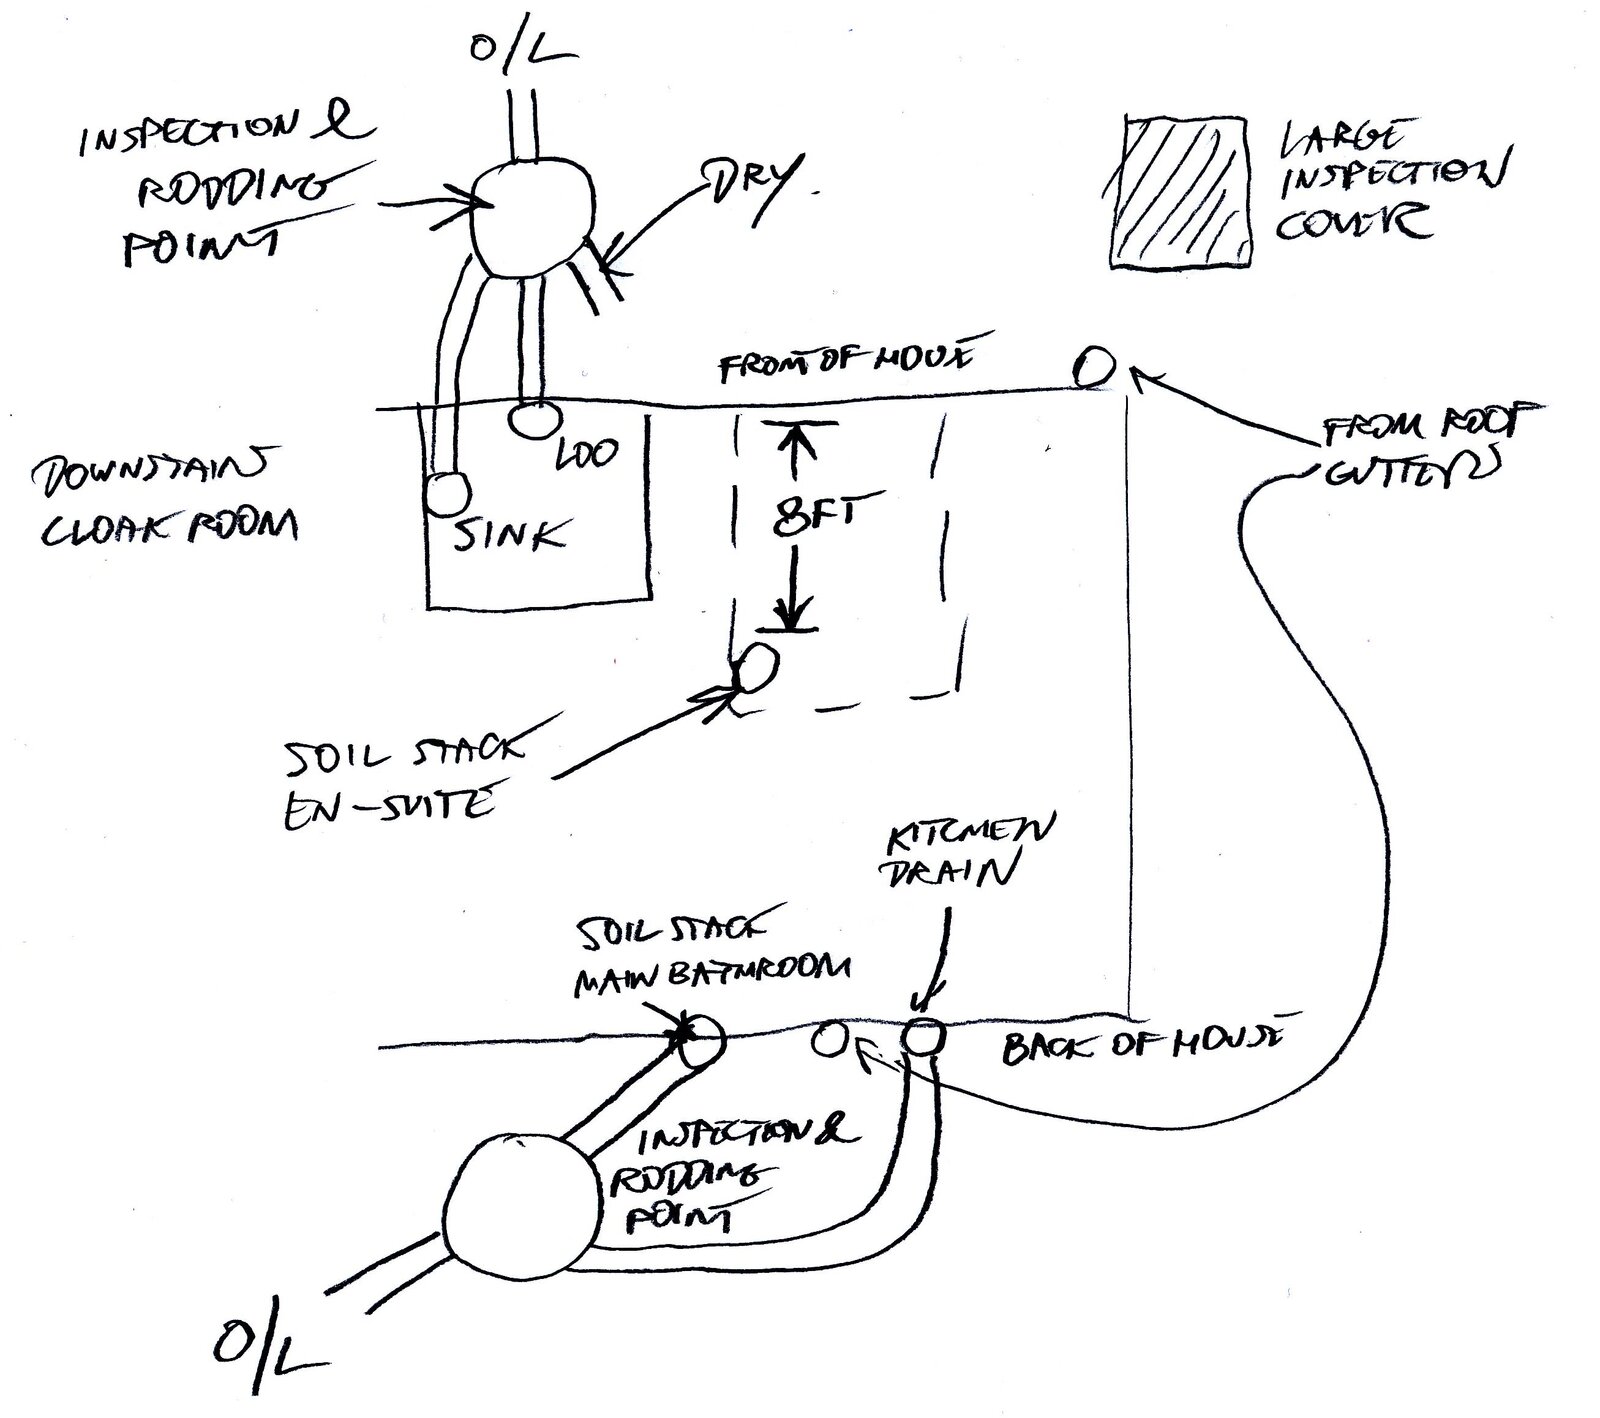 O/L
INSPECTION &
RODDING
POINT
DRY.
LARGE
INSPECTION
COVER
FRONT OF HOUSE
FROM ROOF
GUTTERS
DOWNSTAIRS
CLOAK ROOM
LOO
SINK
8FT
SOIL STACK
EN-SUITE
KITCHEN
DRAIN
SOIL STACK
MAIN BATHROOM
BACK OF HOUSE
INSPECTION &
RODDING
POINT
O/L